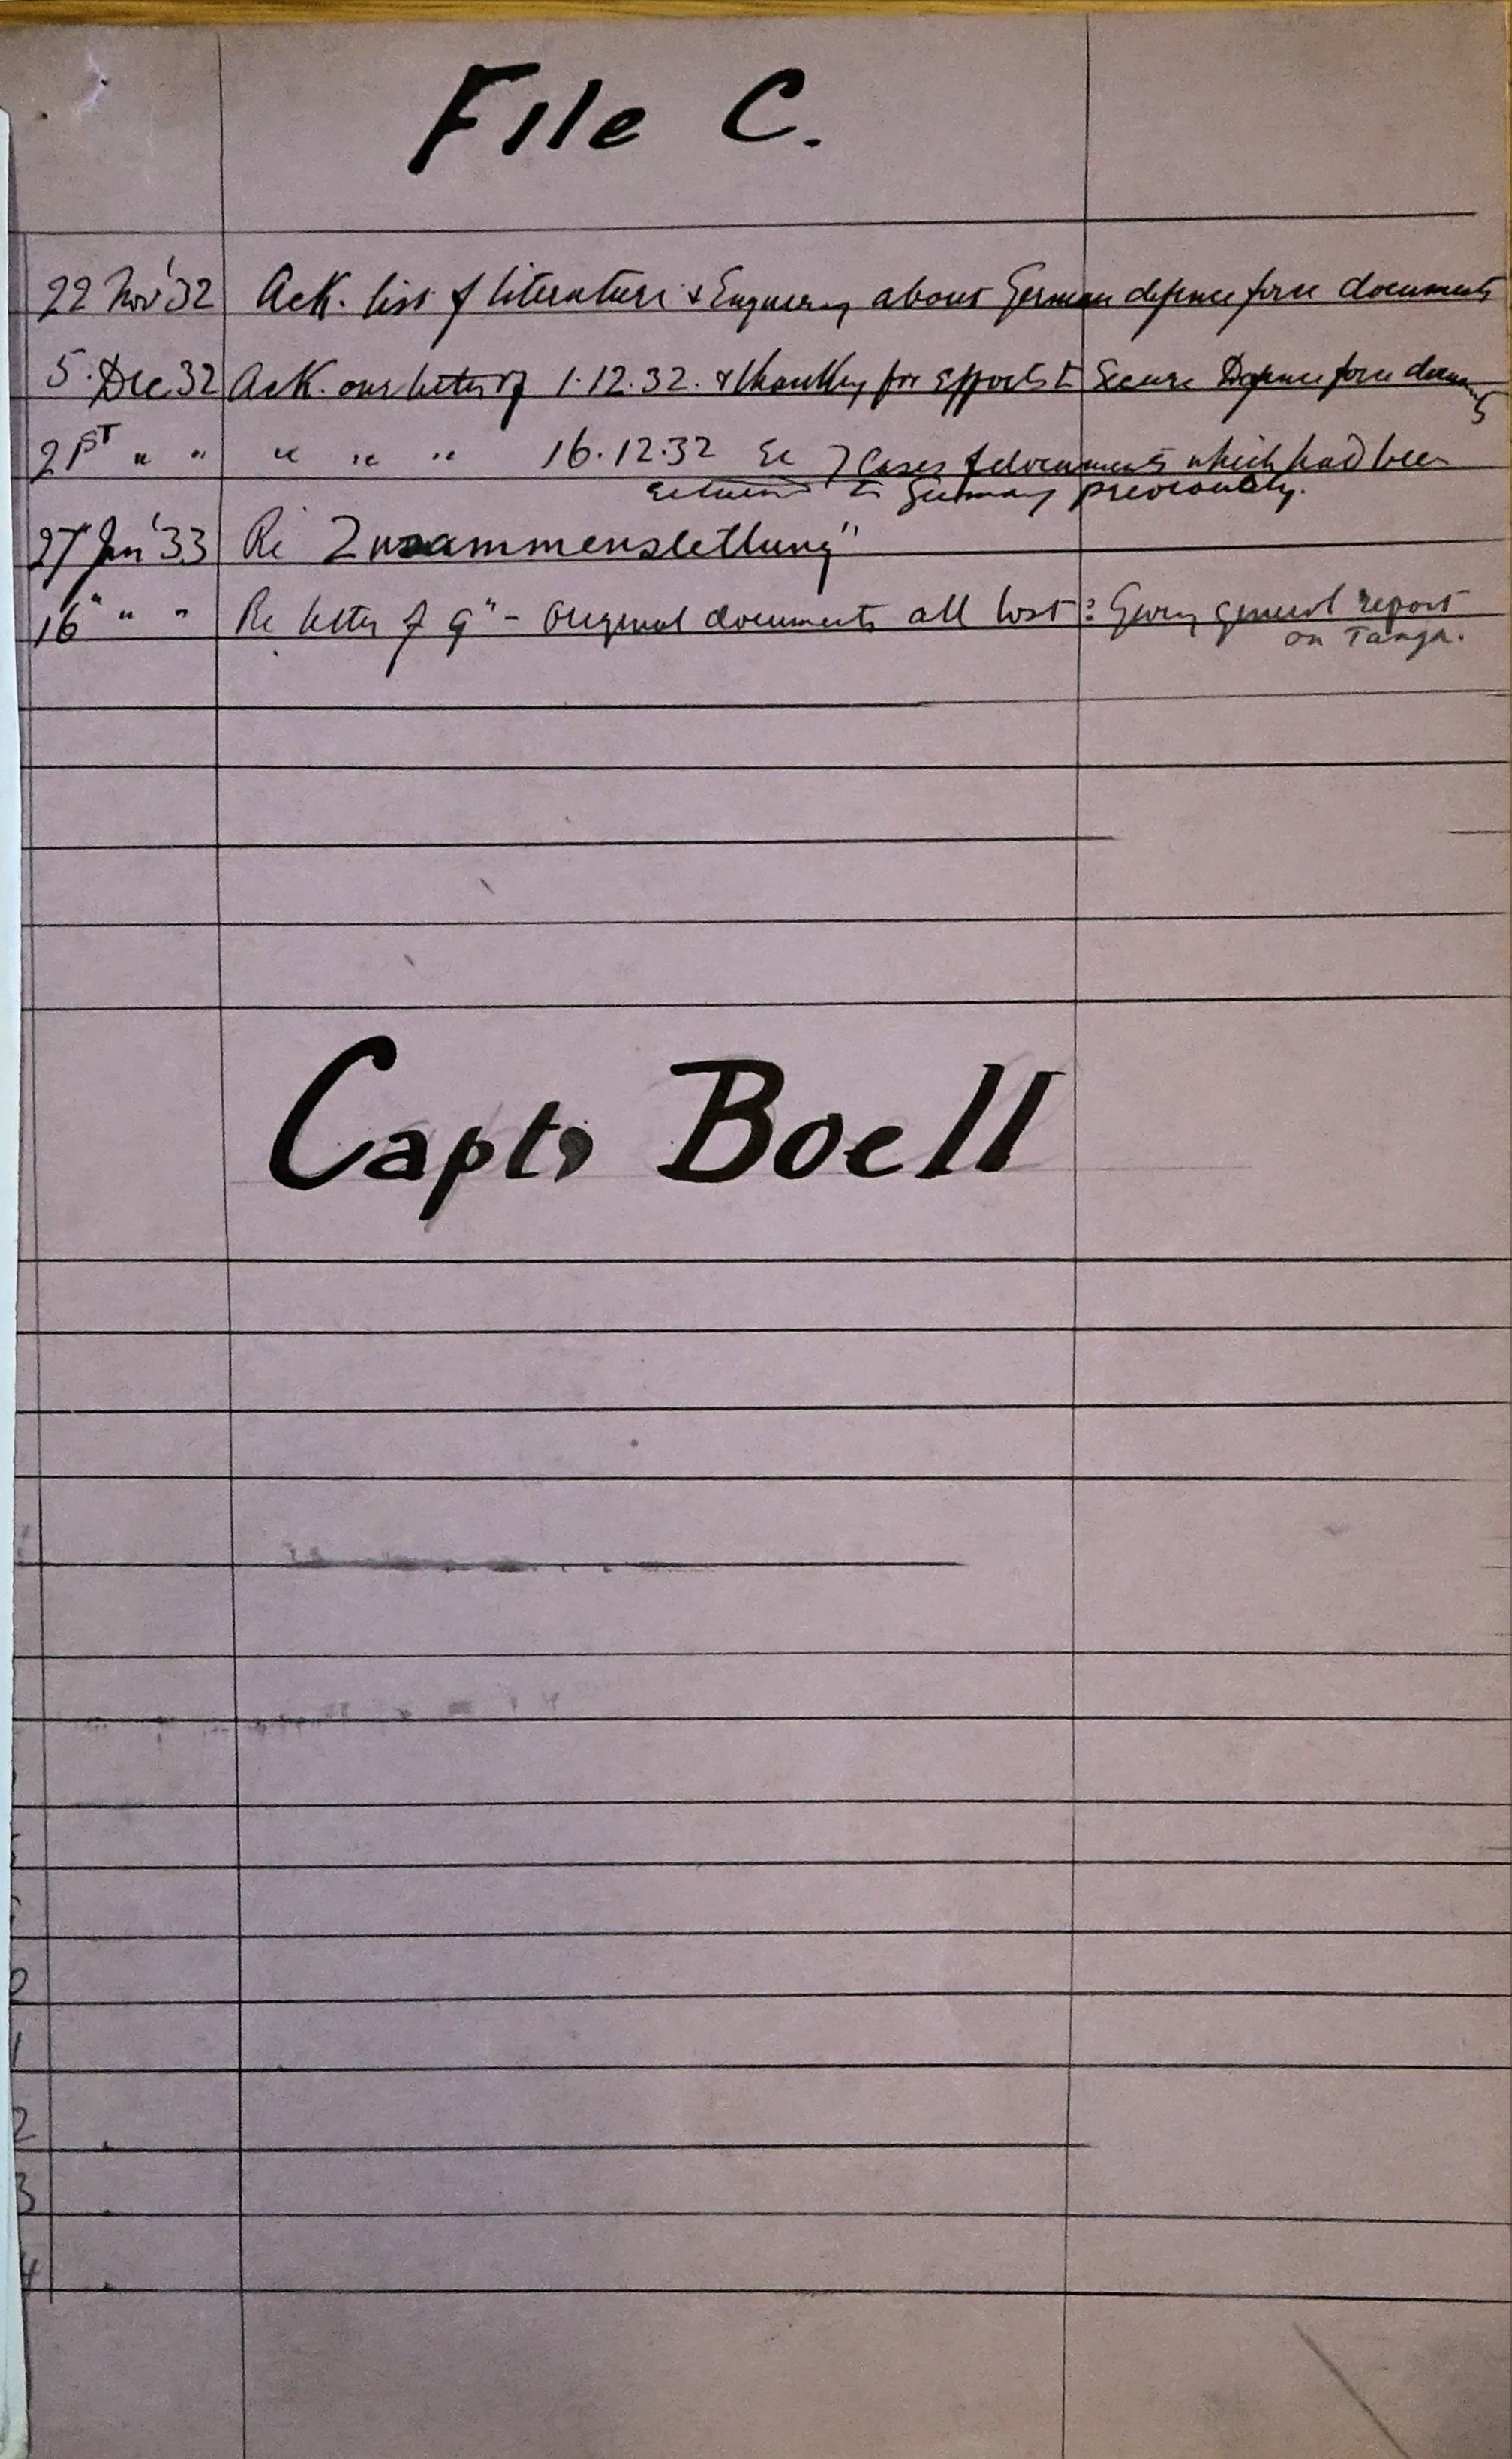 File C.
22 Nov '32 Ack. list of literature & Enquiring about German defence force documents
5. Dec. 32 Ack. our letter of 1.12.32. & thanking for efforts to Secure Defence force documents
21ST " " " " " 16.12.32 re 7 Cases of documents which had been
returned to Germany previously.
27 Jan '33 Re Zusammenstellung"
16" " " Re letter of 9" - Original documents all lost: Giving general report
on Tanga.
Capt. Boell
2
3
4